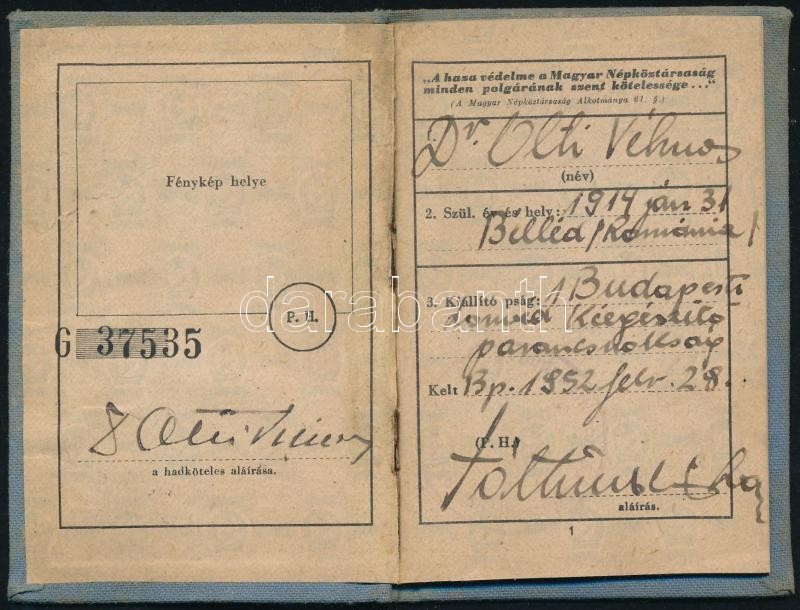 Fénykép helye
P. H.
G 37535
a hadköteles aláírása.
„A haza védelme a Magyar Népköztársaság
minden polgárának szent kötelessége..."
(A Magyar Népköztársaság Alkotmánya 61. §.)
Dr. Olti Vilmos
(név)
2. Szül. év és hely: 1914 jan 31
Billéd /Románia/
3. Kiállító pság: 1 Budapesti
Honvéd Kiegészítő
parancsnokság
Kelt Bp. 1952 febr. 28.
(P. H.)
aláírás.
1
darabanth